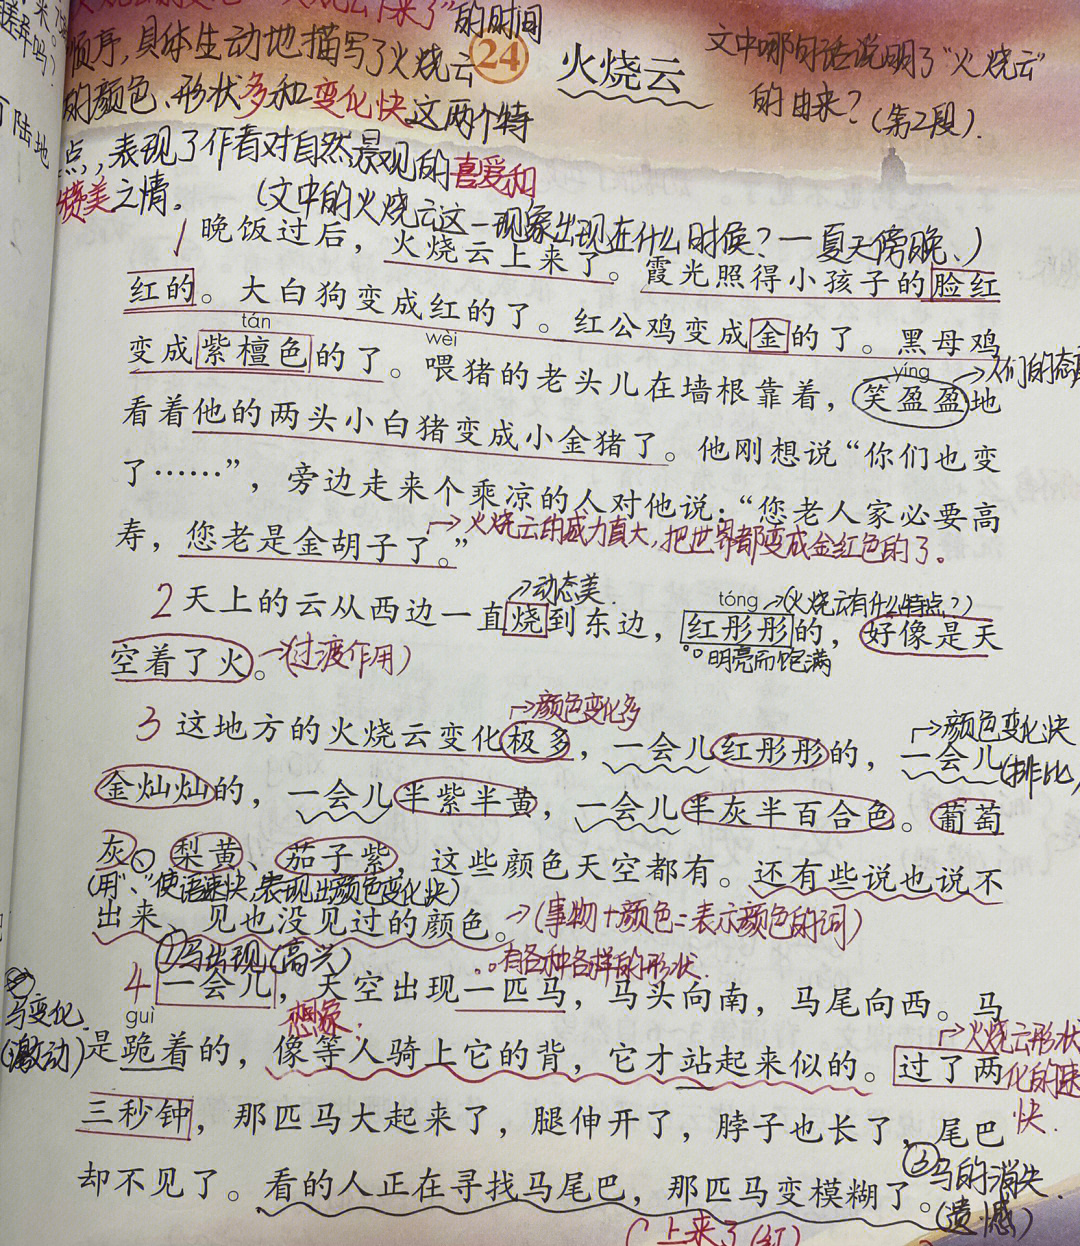 ”的时间
顺序,具体生动地描写了火烧云
的颜色、形状多和变化快这两个特
点,表现了作者对自然景观的喜爱和
赞美之情。
24 火烧云
文中哪句话说明了“火烧云”
的由来?(第2段).
(文中的火烧云这一现象出现在什么时候?一夏天傍晚、)
1 晚饭过后,火烧云上来了。霞光照得小孩子的脸红
红的。大白狗变成红的了。红公鸡变成金的了。黑母鸡
tán
变成紫檀色的了。喂猪的老头儿在墙根靠着,笑盈盈地
wèi
yíng
→人们的态
看着他的两头小白猪变成小金猪了。他刚想说“你们也变
了……”,旁边走来个乘凉的人对他说:“您老人家必要高
寿,您老是金胡子了。”
→火烧云的威力真大,把世界都变成金红色的了.
→动态美.
tóng
→(火烧云有什么特点?)
2 天上的云从西边一直烧到东边,红彤彤的,好像是天
明亮而饱满
空着了火。→(过渡作用)
→颜色变化多
→颜色变化快
3 这地方的火烧云变化极多,一会儿红彤彤的,一会儿
(排比)
金灿灿的,一会儿半紫半黄,一会儿半灰半百合色。葡萄
灰、梨黄、茄子紫,这些颜色天空都有。还有些说也说不
(用“、”使语速快,表现出颜色变化快)
出来、见也没见过的颜色。→(事物+颜色=表示颜色的词)
①马出现(高兴)
有各种各样的形状.
4 一会儿,天空出现一匹马,马头向南,马尾向西。马
②马变化.
(激动)
guì
想象:
是跪着的,像等人骑上它的背,它才站起来似的。过了两
→火烧云形状
化的速
快.
三秒钟,那匹马大起来了,腿伸开了,脖子也长了,尾巴
却不见了。看的人正在寻找马尾巴,那匹马变模糊了。
③马的消失.
(遗憾)
上来了(红)